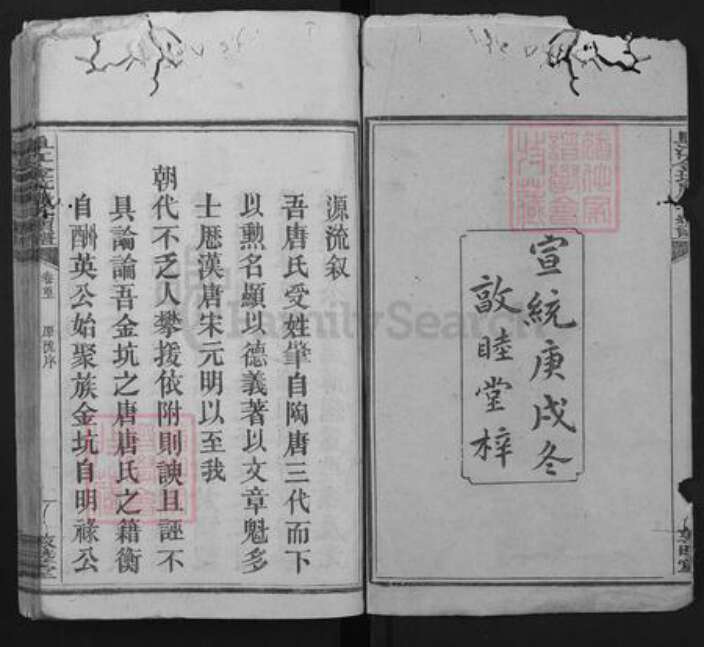 宣統庚戌冬
敦睦堂梓
源流叙
吾唐氏受姓肇自陶唐三代而下
以勲名顯以德義著以文章魁多
士厯漢唐宋元明以至我
朝代不乏人攀援依附則諛且誣不
具論論吾金坑之唐唐氏之籍衡
自酬英公始聚族金坑自明祿公
FamilySearch